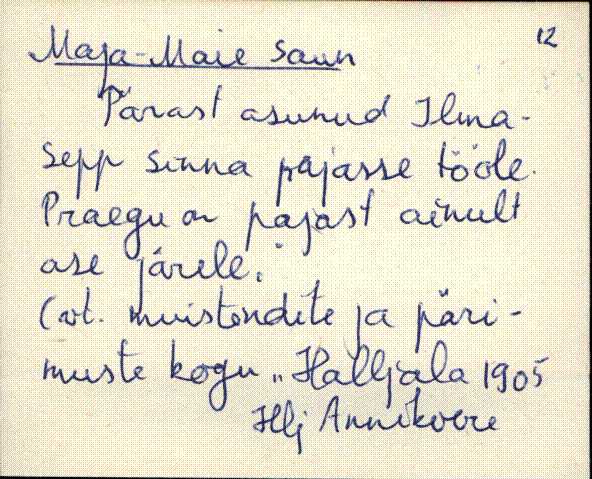 12
Maja-Maie saun
Pärast asunud Ilma-
sepp sinna pajasse tööle.
Praegu on pajast ainult
ase järele."
(vt. muistendite ja päri-
muste kogu „Haljala 1905
Hlj Annikvere